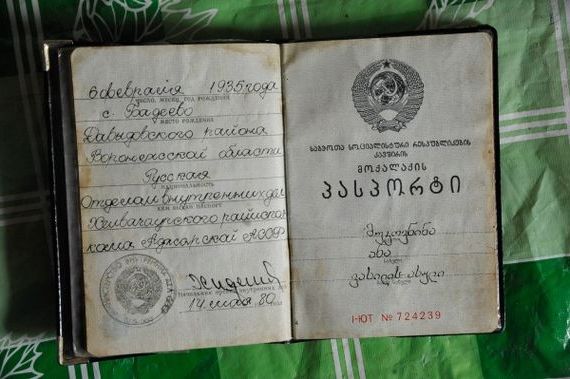 6 февраля 1935 года
число, месяц, год рождения
с. Бадеево
место рождения
Давыдовского района
Воронежской области
Русская
национальность
Отделом внутренних дел
кем выдан паспорт
Хелвачаурского райиспол
кома Аджарской АССР
14 мая 80
ᲡᲐᲑᲭᲝᲗᲐ ᲡᲝᲪᲘᲐᲚᲘᲡᲢᲣᲠᲘ ᲠᲔᲡᲞᲣᲑᲚᲘᲙᲔᲑᲘᲡ
ᲙᲐᲕᲨᲘᲠᲘᲡ
ᲛᲝᲥᲐᲚᲐᲥᲘᲡ
ᲞᲐᲡᲞᲝᲠᲢᲘ
ანა
ვასილის ასული
I-ЮТ № 724239